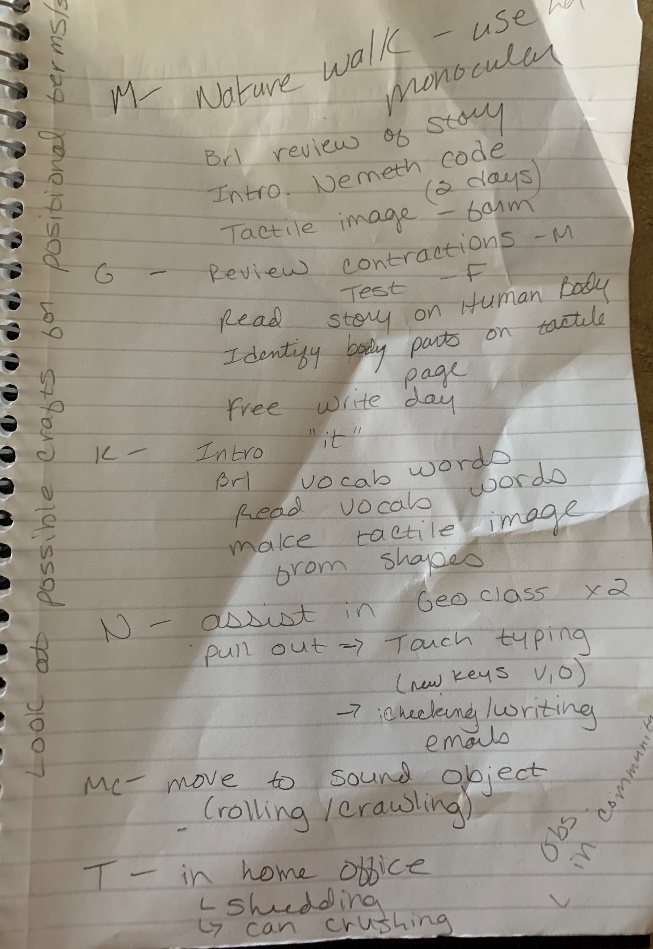 M- Nature walk - use
monocular
Brl review of story
Intro. Nemeth code
(2 days)
Tactile image - farm
G - Review contractions - M
Test - F
Read story on Human Body
Identify body parts on tactile
page
Free write day
K - Intro "it"
Brl vocab words
Read vocab words
make tactile image
from shapes
N - assist in Geo class x2
pull out → Touch typing
(new keys v,o)
→ checking/writing
emails
Mc- move to sound object
(rolling/crawling)
T - in home office
↳ shredding
↳ can crushing
Look at possible crafts for positional terms/s
Obs.
in communit